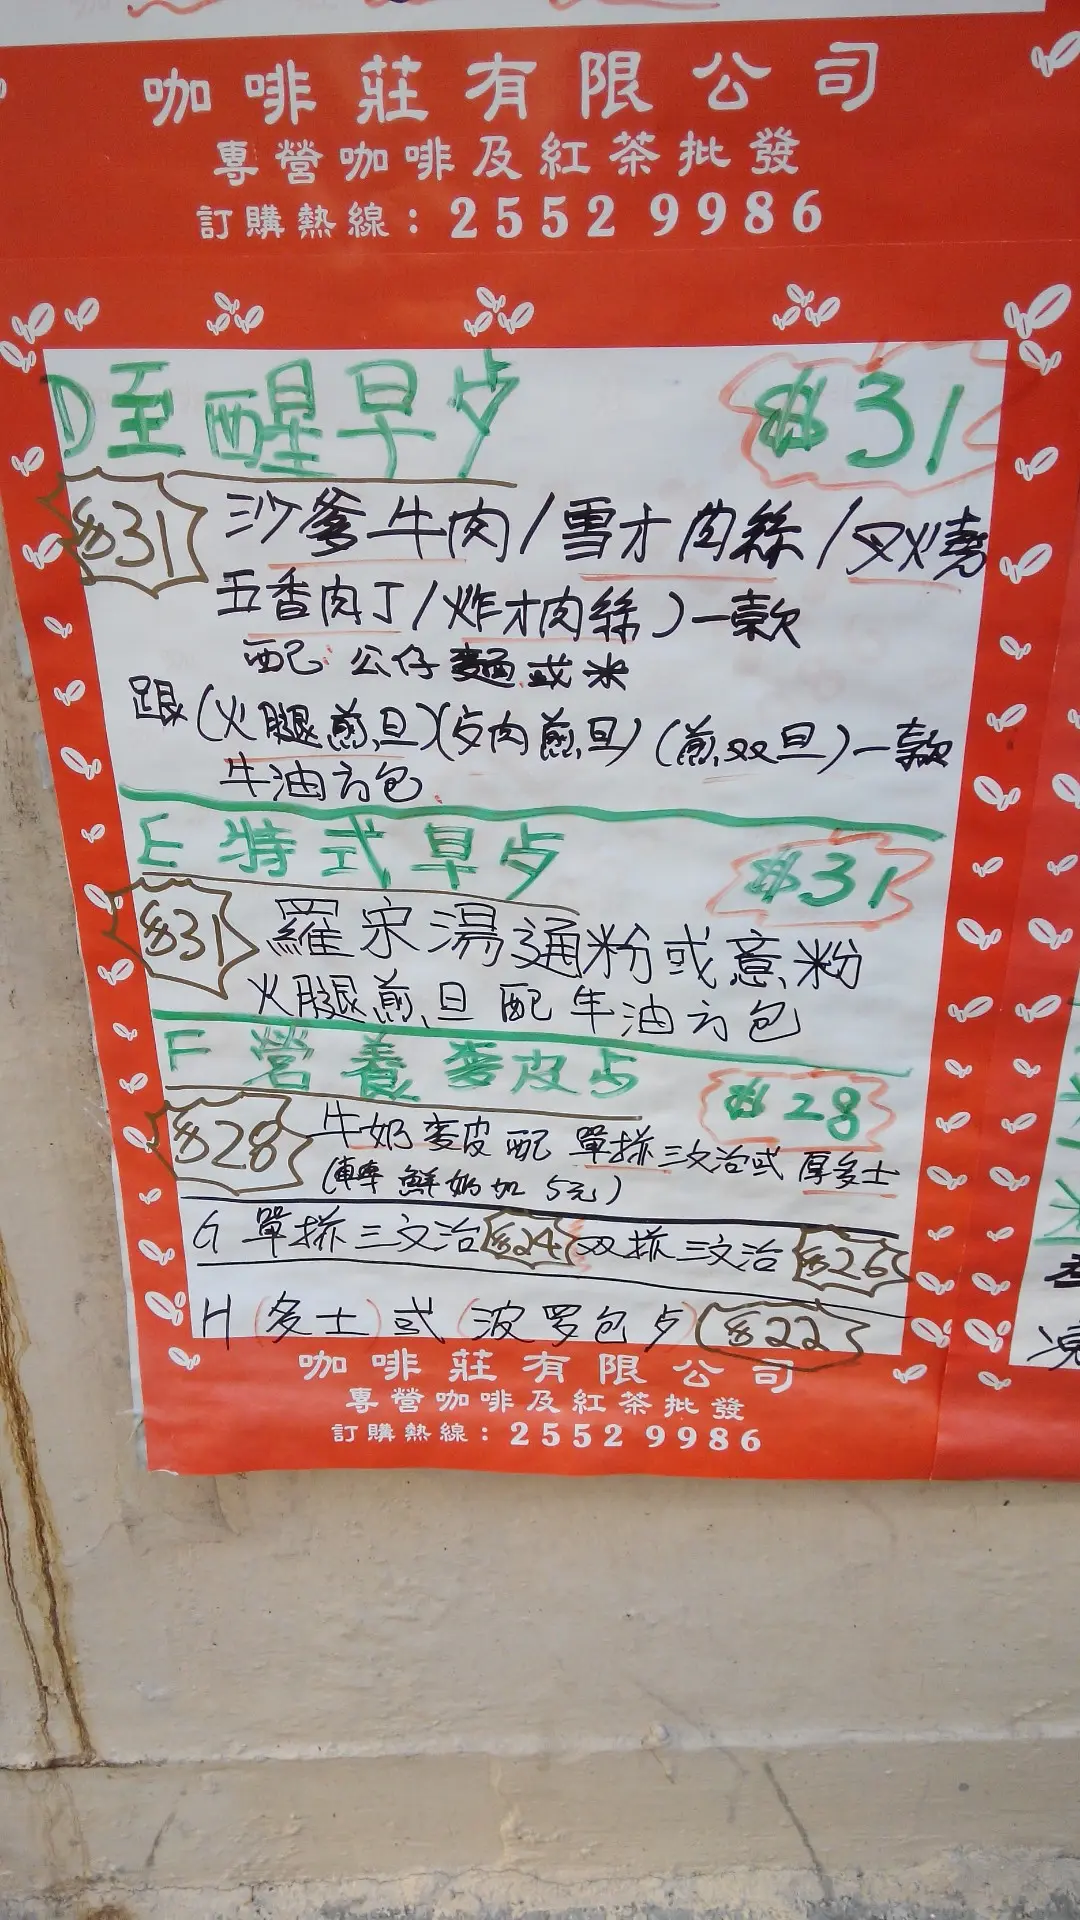 咖啡莊有限公司
專營咖啡及紅茶批發
訂購熱線：2552 9986
D至醒早歺 $31
$31 沙爹牛肉/雪才肉絲/叉燒
五香肉丁/炸才肉絲)一款
配 公仔麵或米
跟(火腿煎旦)(歺肉煎旦)(煎双旦)一款
牛油方包
E 特式早歺 $31
$31 羅宋湯通粉或意粉
火腿煎旦 配 牛油方包
F 營養麥皮歺 $28
$28 牛奶麥皮 配 單拼三文治或 厚多士
(轉鮮奶加 5元)
G 單拼三文治 $24 双拼三文治 $26
H (多士) 或 (波罗包歺) $22
咖啡莊有限公司
專營咖啡及紅茶批發
訂購熱線：2552 9986